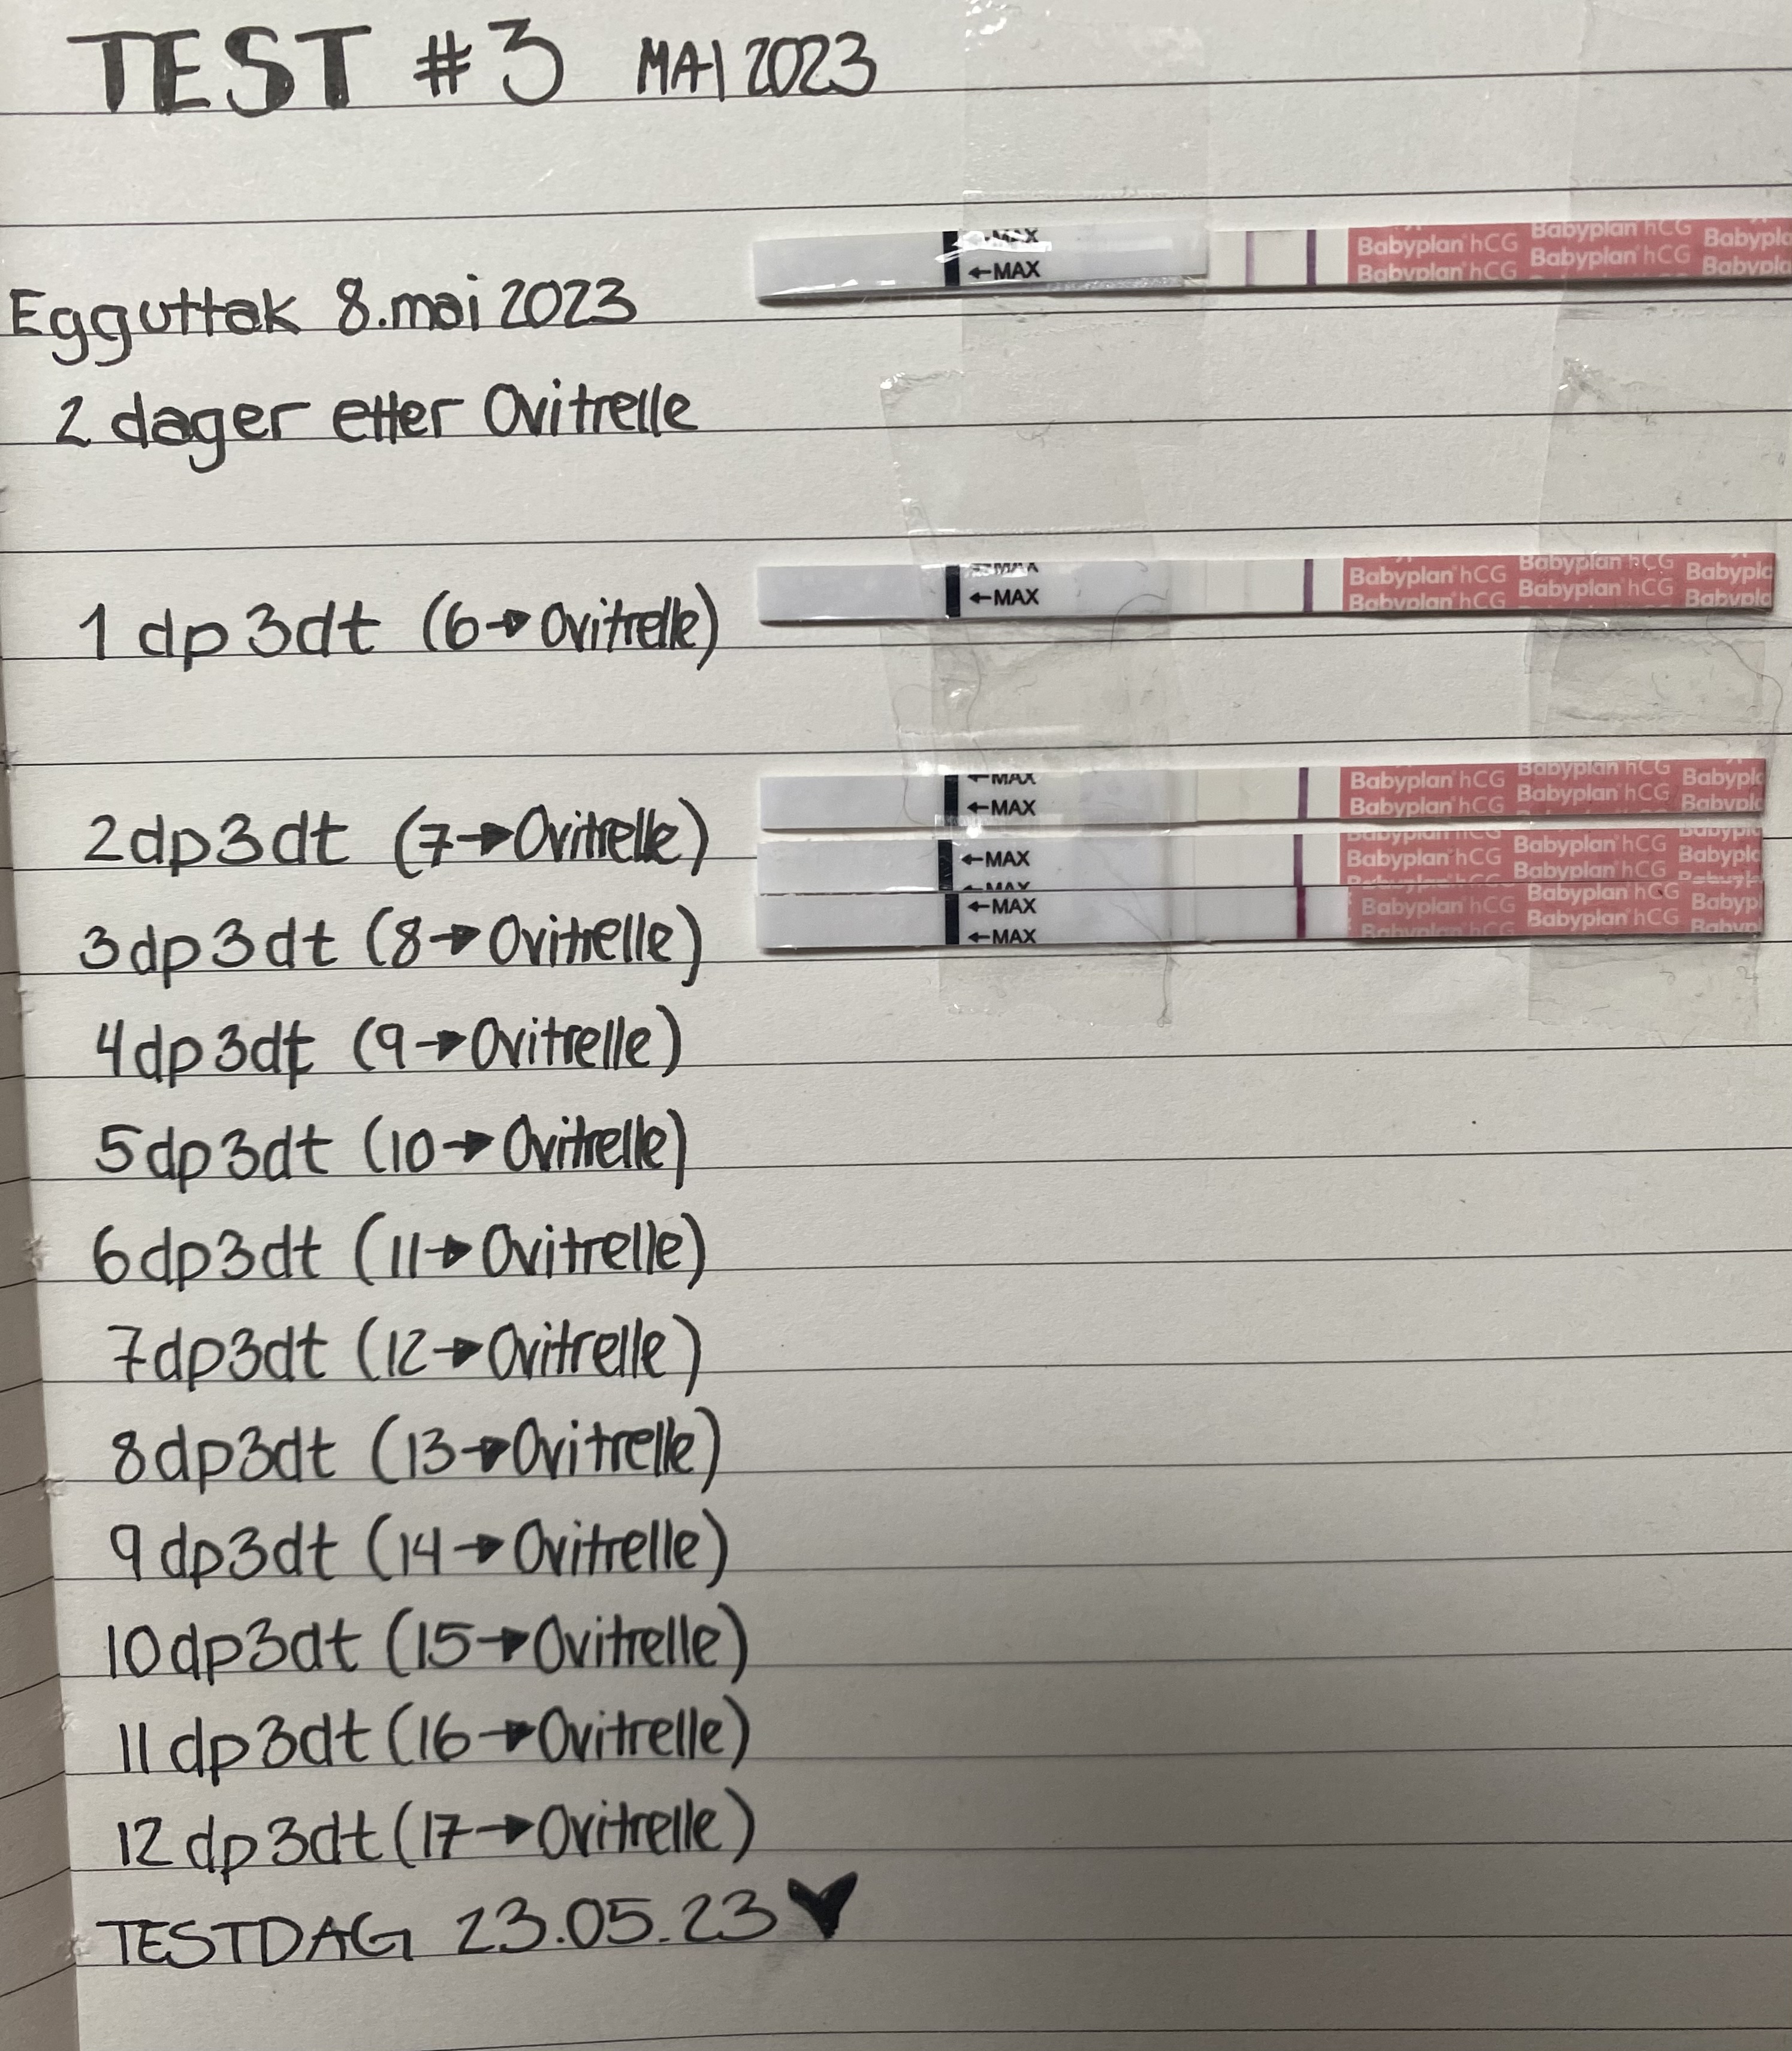 TEST #3 MAI 2023
Babyplan hCG Babyplan
←MAX Babyplan hCG Babyplan hCG
←MAX Babyplan hCG Babyplan
Egguttak 8.mai 2023
2 dager etter Ovitrelle
←MAX Babyplan hCG
Babyplan hCG Babyplan hCG
←MAX Babyplan hCG
1 dp 3dt (6→Ovitrelle)
←MAX Babyplan hCG Babyplan hCG
←MAX Babyplan hCG Babyplan hCG
2dp3dt (7→Ovitrelle)
←MAX Babyplan hCG Babyplan hCG
←MAX Babyplan hCG
←MAX Babyplan hCG Babyplan hCG
←MAX Babyplan hCG
3dp3dt (8→Ovitrelle)
4dp3dt (9→Ovitrelle)
5dp3dt (10→Ovitrelle)
6dp3dt (11→Ovitrelle)
7dp3dt (12→Ovitrelle)
8dp3dt (13→Ovitrelle)
9dp3dt (14→Ovitrelle)
10dp3dt (15→Ovitrelle)
11dp3dt (16→Ovitrelle)
12dp3dt (17→Ovitrelle)
TESTDAG 23.05.23♥